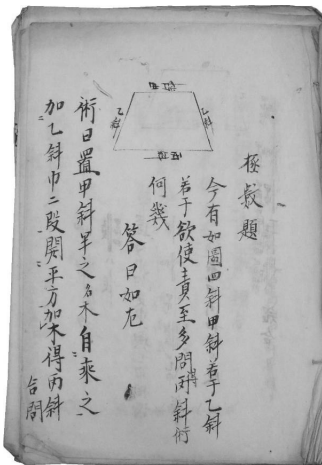 極数題
今有如圖四斜甲斜若干乙斜
若干欲使責至多問得丙斜術
何幾
答曰如左
乙斜
乙斜
術曰置甲斜半之名木自乘之
加乙斜巾二段開平方加木得丙斜
合問